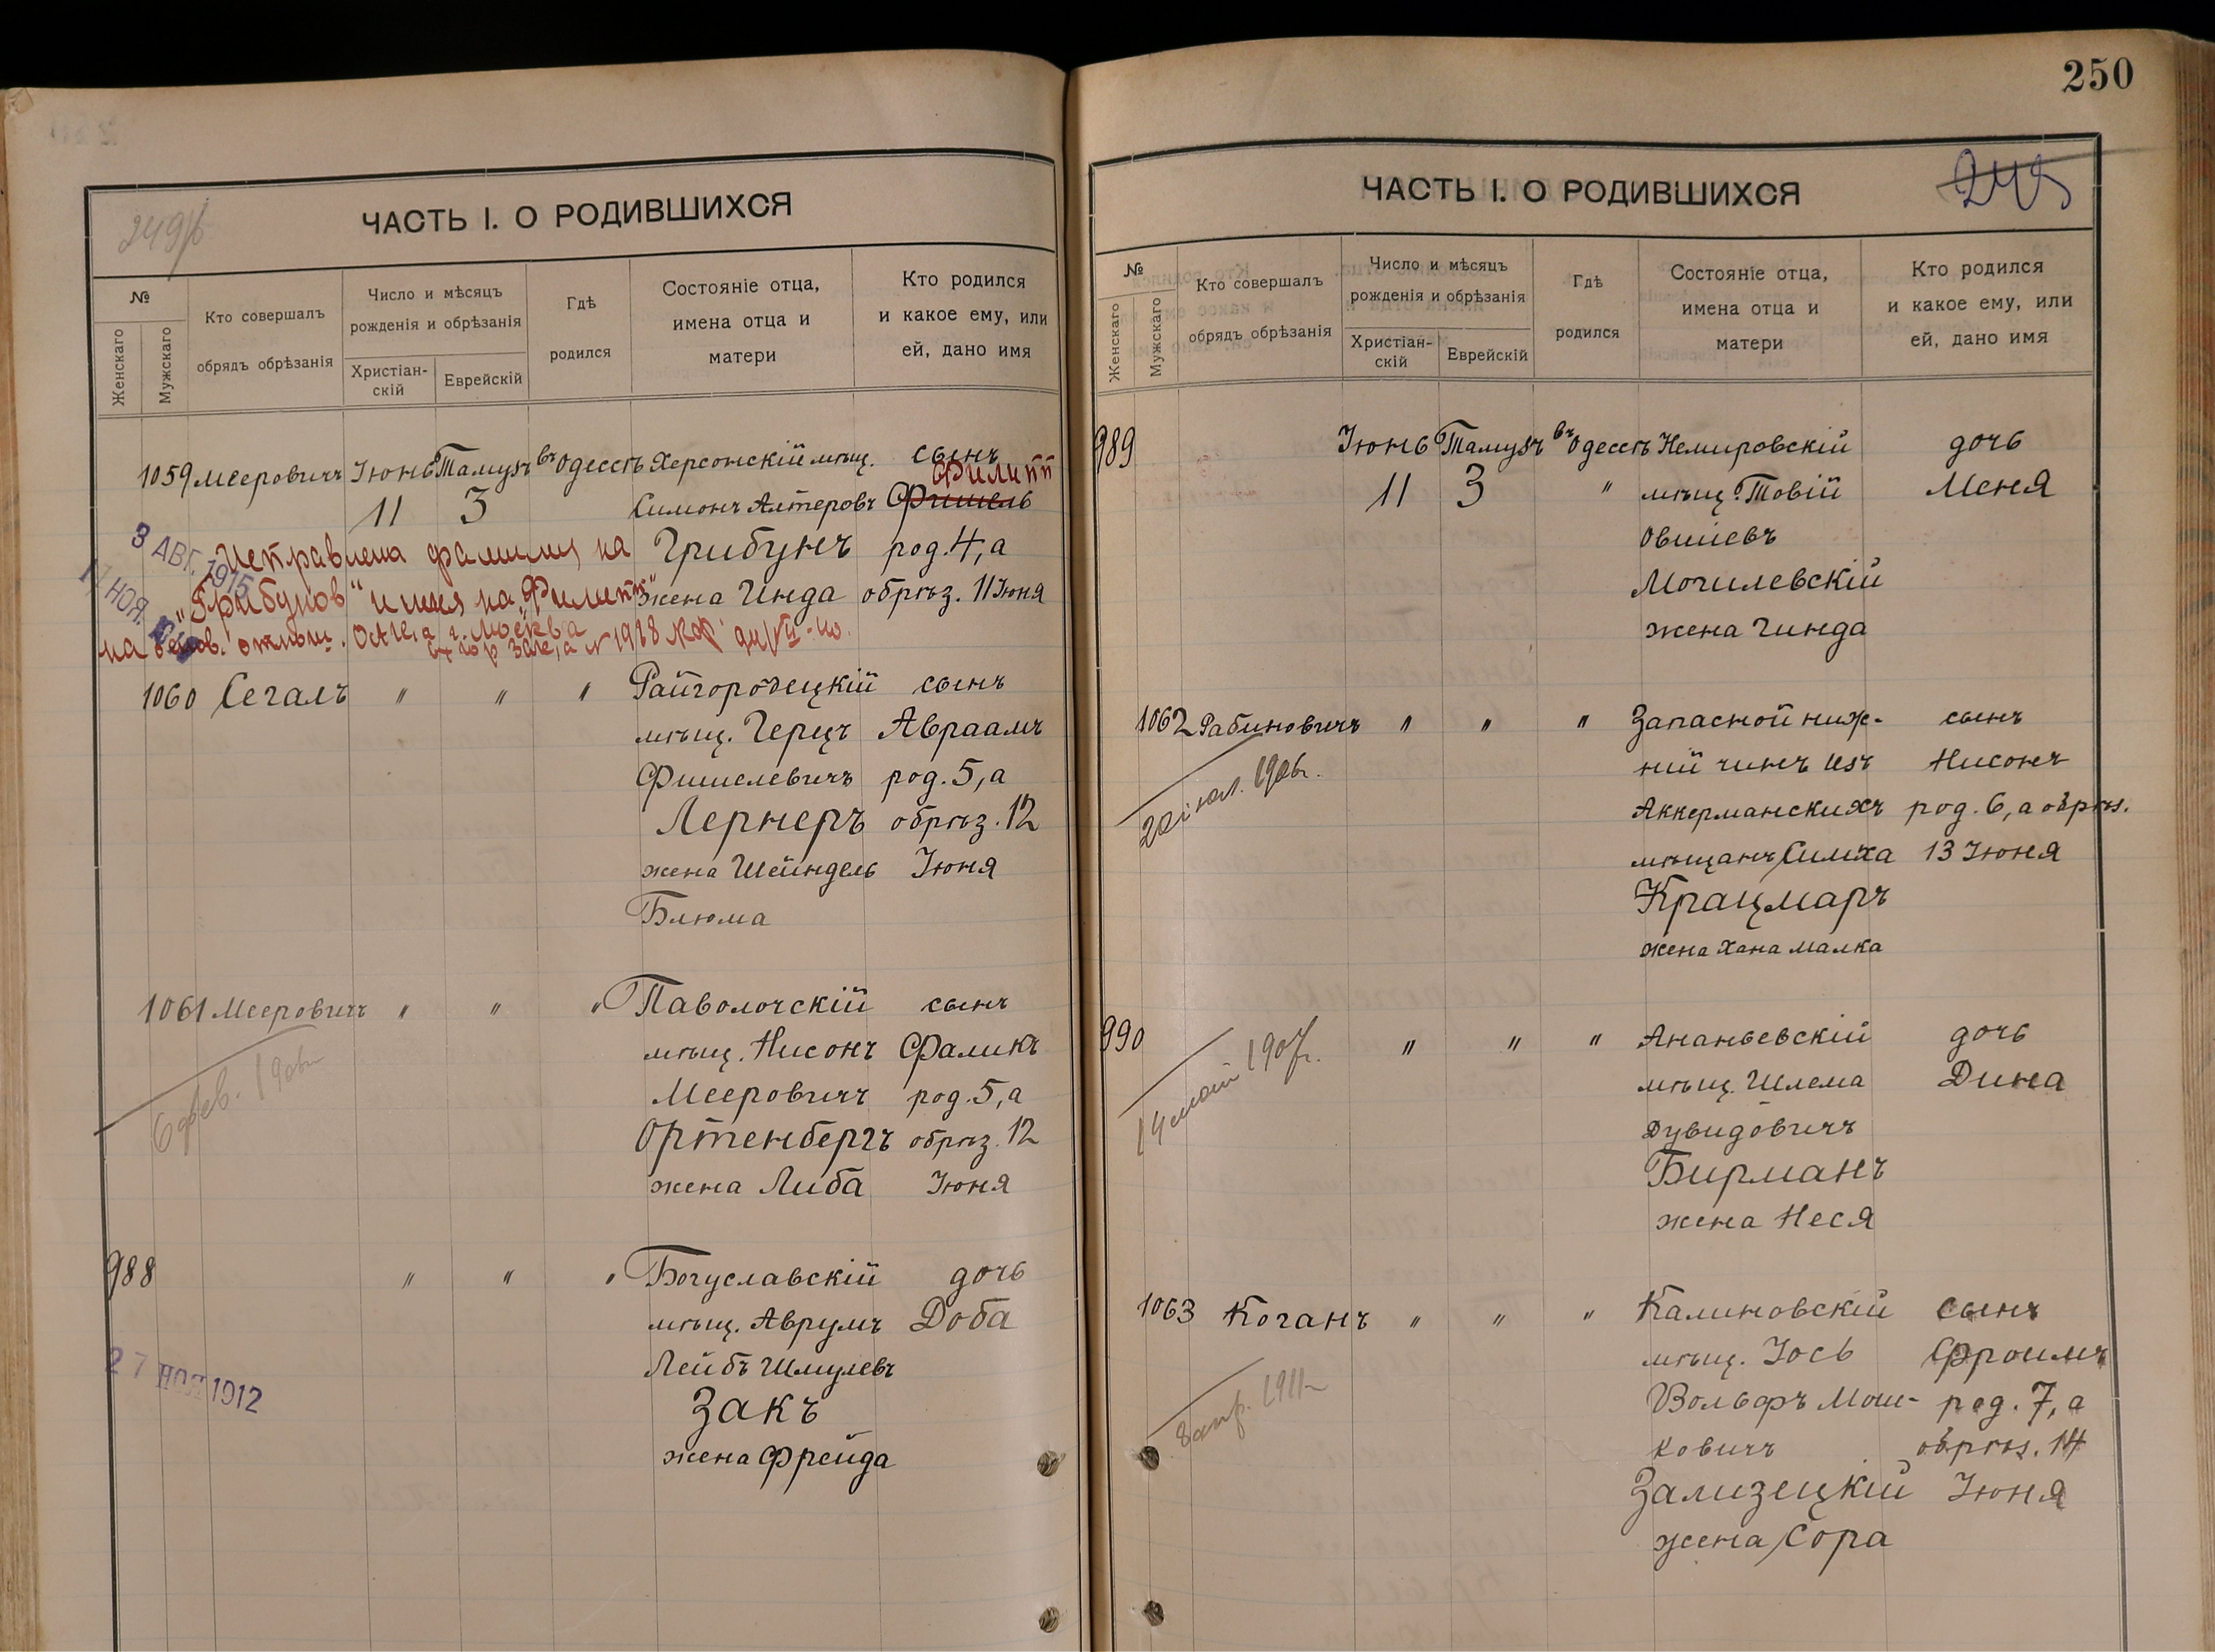 250
249/б
ЧАСТЬ I. О РОДИВШИХСЯ
№
Женскаго
Мужскаго
Кто совершалъ
обрядъ обрѣзанія
Число и мѣсяцъ
рожденія и обрѣзанія
Христіан-
скій
Еврейскій
Гдѣ
родился
Состояніе отца,
имена отца и
матери
Кто родился
и какое ему, или
ей, дано имя
1059 Мееровичъ Іюнь Тамузъ въ Одессѣ Херсонскій мѣщ. сынъ
Филипп
11 3 Симонъ Алтеровъ Фишель
3 АВГ. 1915
Исправлена фамилия на Грибунъ род. 4, а
11 НОЯ.
„Грибунов" и имя на „Филипп" жена Гинда обрѣз. 11 Іюня
на основ. отмош. ЗАГСа г. Москва
1060 Сегалъ " " " Райгородецкій сынъ
мѣщ. Герцъ Авраамъ
Фишелевичъ род. 5, а
Лернеръ обрѣз. 12
жена Шейндель Іюня
Блюма
1061 Мееровичъ " " " Паволочскій сынъ
мѣщ. Нисонъ Фаликъ
6 фев.
Мееровичъ род. 5, а
Ортенбергъ обрѣз. 12
жена Либа Іюня
988 " " " Богуславскій дочь
мѣщ. Аврумъ Доба
27 НОЯ 1912
Лейбъ Шмулевъ
Закъ
жена Фрейда
ЧАСТЬ I. О РОДИВШИХСЯ
№
Женскаго
Мужскаго
Кто совершалъ
обрядъ обрѣзанія
Число и мѣсяцъ
рожденія и обрѣзанія
Христіан-
скій
Еврейскій
Гдѣ
родился
Состояніе отца,
имена отца и
матери
Кто родился
и какое ему, или
ей, дано имя
989 Іюнь Тамузъ въ Одессѣ Немировскій дочь
11 3 " мѣщ. Товій Меня
Овшіевъ
Могилевскій
жена Гинда
1062 Рабиновичъ " " " Запасной ниж- сынъ
ній чинъ изъ Нисонъ
1906г.
Аккерманскихъ род. 6, а обрѣз.
мѣщанъ Симха 13 Іюня
Крацмаръ
жена Хана Малка
990 " " " Ананьевскій дочь
14 май 1907г.
мѣщ. Шлема Дина
Дувидовичъ
Бирманъ
жена Неся
1063 Коганъ " " " Калиновскій сынъ
мѣщ. Іось Фроимъ
8 апр. 1911
Вольфъ Мош- род. 7, а
ковичъ обрѣз. 14
Зализецкій Іюня
жена Сора